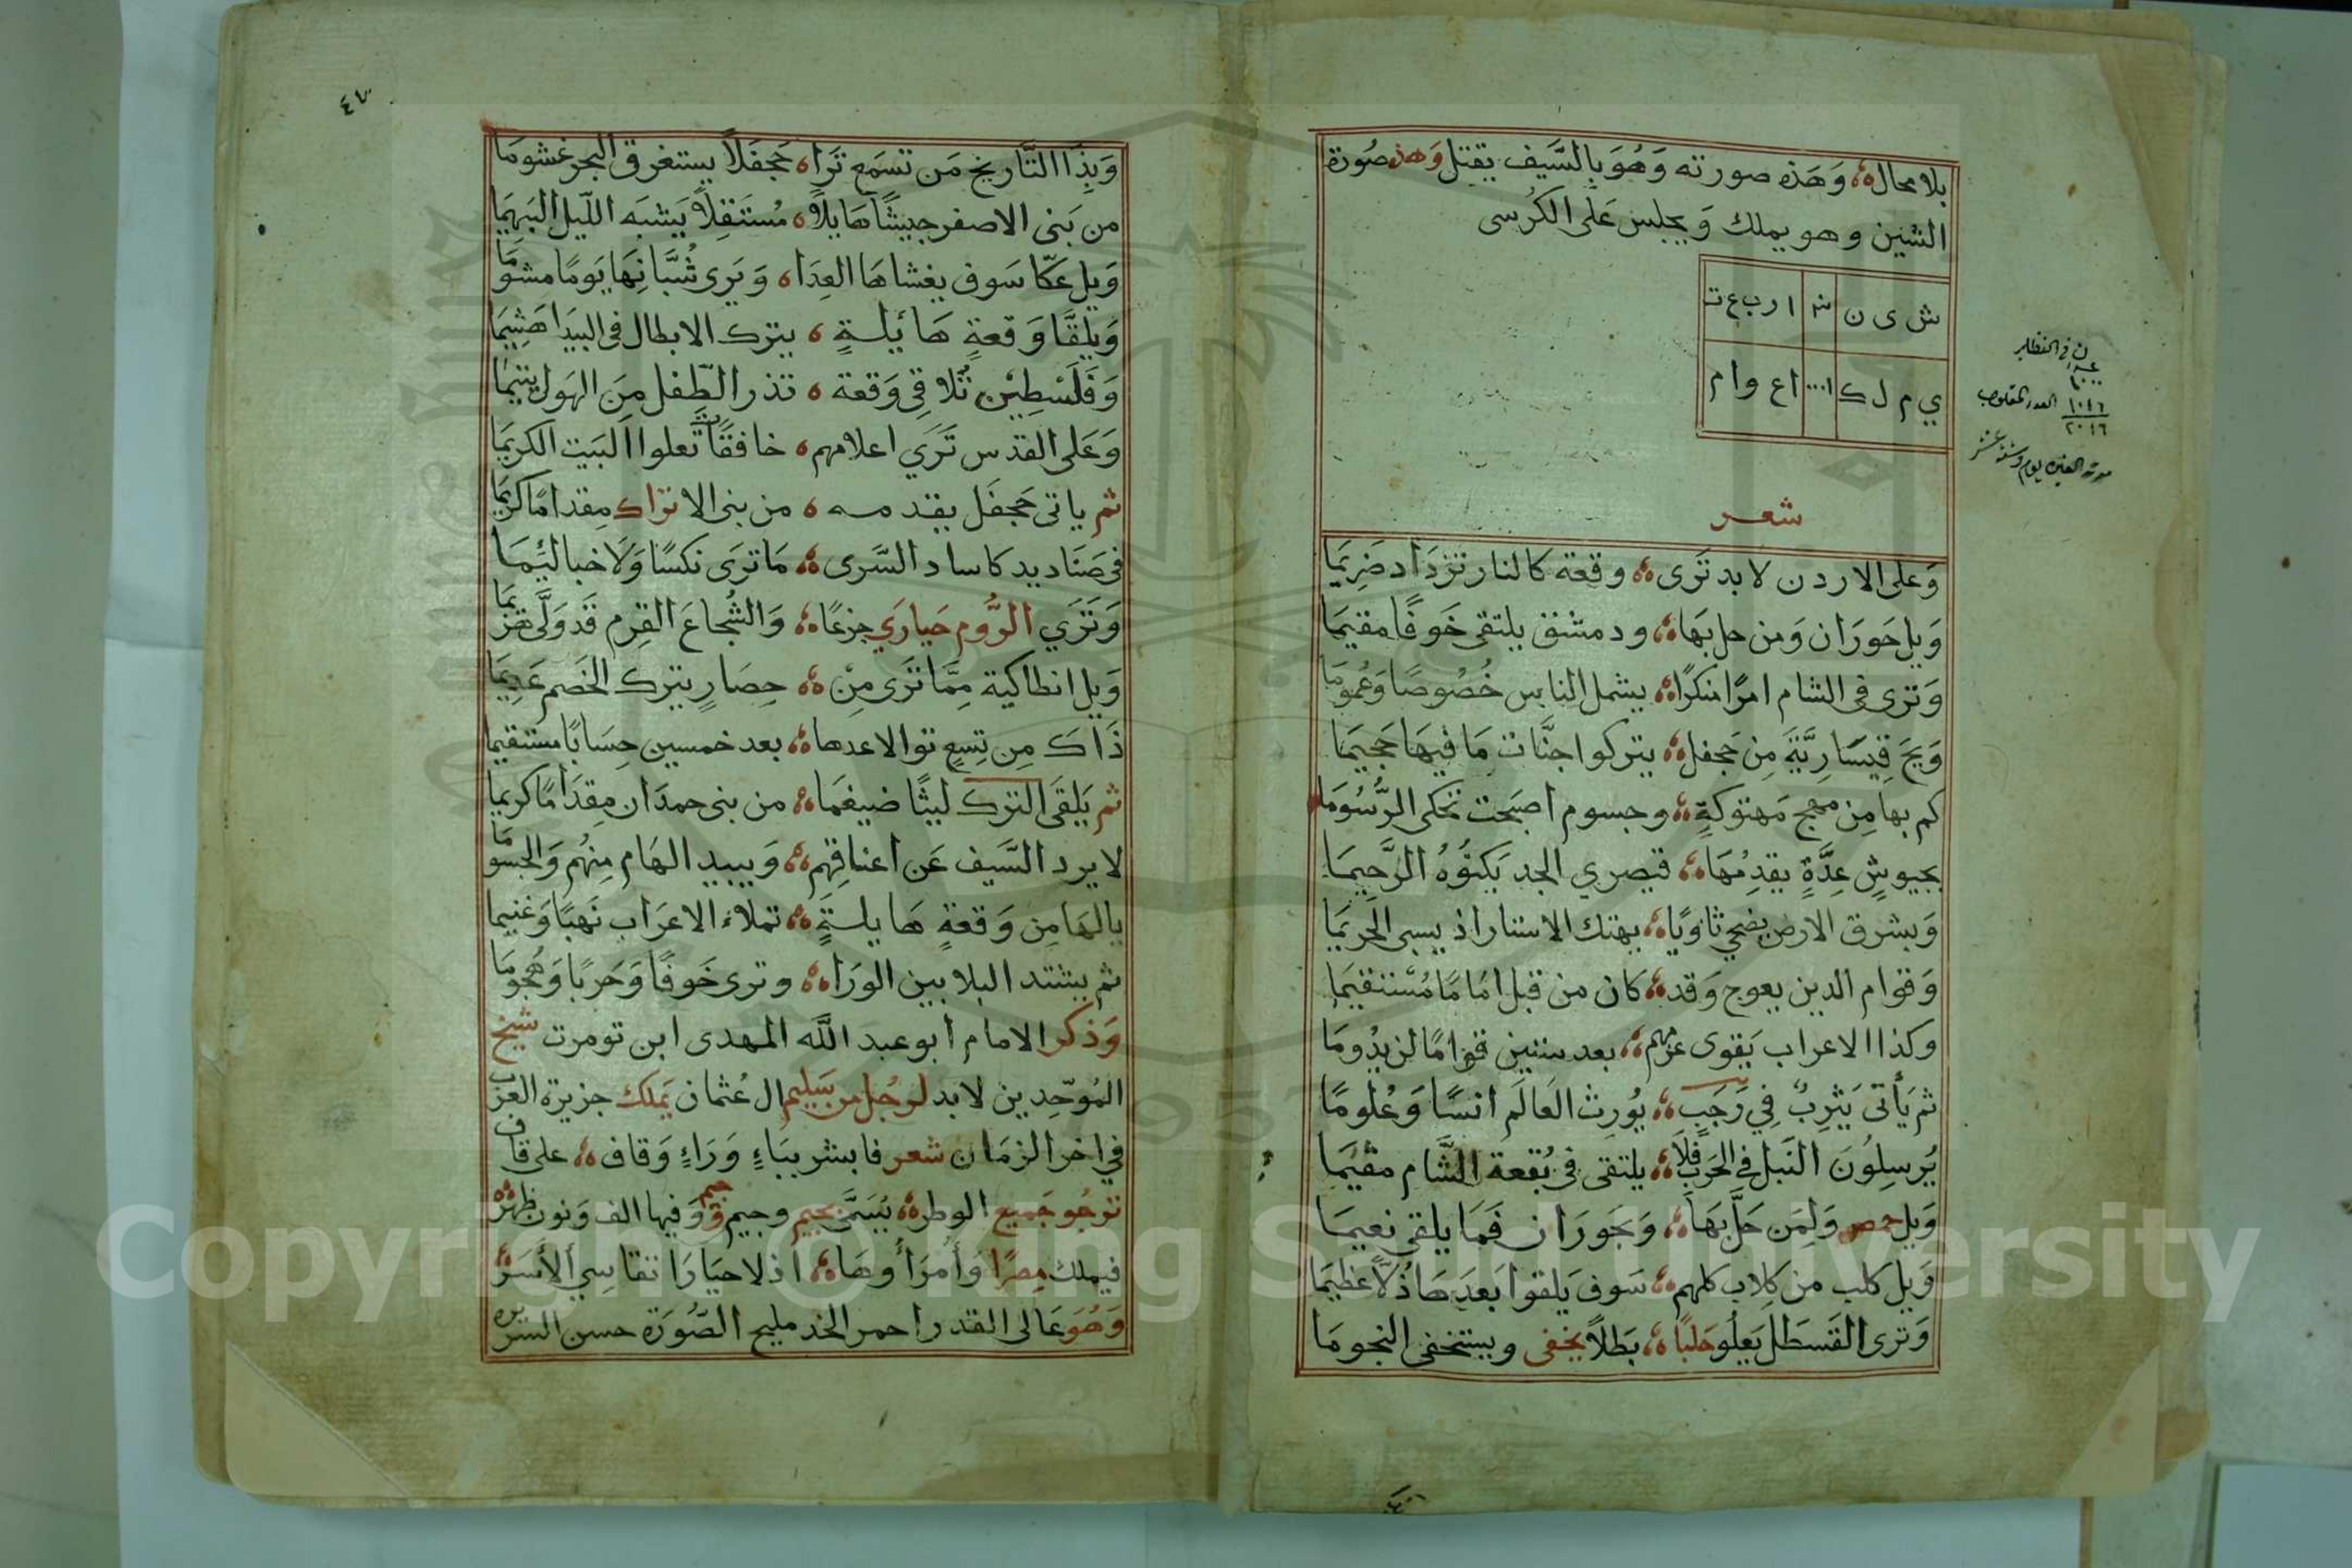 بلا محال وَهَذه صورته وَهُوَ بالسَّيف يقتل وَهذه صُورة
الشين وهو يملك وَيجلس عَلى الكُرسى
ش ى ن ش ا ر ب ع ت
ي م ل ك ١٠٠٠ ا ع و ا م
العدد المقلوب
١٠١٦
٢٠١٦
شعر
وَعلى الاردن لا بد تَرى وقعة كالنار تزدَاد ضَرِيمَا
وَيل حَورَان وَمن حل بهَا ودمشق يلتقى خَوفًا مقيمَا
وَترى فى الشام امرًا منكرًا يشمل الناس خُصُوصًا وَعُمومَا
وَيحَ قيسَارِيَّةَ مِن جَحفل يتركوا جنَّات مَا فيهَا جَحيمَا
كم بها مِن مهج مَهتوكةٍ وجسوم اصبَحت تحكى الرُّسُومَا
بجيوشٍ عِدَّةٍ يقدِمُهَا قيصري الجد يَكنُوهُ الرَّحِيمَا
وَبشرق الارض يضحي ثاوِيًا بهتك الاستار اذ يسبى الحرِيمَا
وَقوام الدين يعوج وَقد كان من قبل امَامًا مُسْتقيمَا
وكذا الاعراب يَقوى عزمهم بعد سنتين قوامًا لن يدُومَا
ثم يَأتى يَثرِبُ فِي رَجَبٍ يُورِث العَالَم انسًا وَعُلومًا
يُرسِلُونَ النَبل فى الحَربِ فلَا يلتقى فى بُقعة الشَّام مقيمَا
وَيل حمص وَلِمَن حَلَّ بهَا وَبحَورَان فَمَا يلقى نعيمَا
وَيل كلب من كِلاب كلهم سَوف يَلقوا بَعدَهَا ذُلًّا عظيمَا
وَترى القَسطَل يَعلُو حَلبًا بَطلًا يخفى ويستخفى النجومَا
٤٧
وَبِذَا التَّاريخ مَن تسمَع تَرَا جَحفلاً يستغرق البحر غشومَا
من بَنى الاصفر جيشًا هَايلًا مُستَقِلًا يَشبَه اللّيل البَهِيمَا
وَيل عَكّا سَوف يغشاهَا العِدَا وَيَرى شُبَّانهَا يَومًا مشومَا
وَيلقَّا وَقعةٍ هَائلةٍ يترك الابطال فى البيدَا هَشِيمَا
وَفَلَسْطِيْن تُلَاقى وَقعة تذر الطِّفل مِنَ الهَول يتيمَا
وَعَلى القدس تَرَي اعلامهم خافقًا تَعلوا البَيت الكريمَا
ثم ياتى جَحفَل يقدمه من بنى الاتراك مِقدامًا كريمَا
فى صَنَاديد كاساد السَّرى مَا ترَى نكسًا وَلَا خبا لئيمَا
وَتَرَي الرُّوم حَيارَي جزعًا وَالشُجاعَ القِرم قَد وَلَّى هَزيمَا
وَيل انطاكية مِمَّا تَرَى مِنْ حِصَارٍ يترك الخَصم عَدِيمَا
ذَاكَ مِن تِسعٍ توالا عدها بعد خمسين حِسَابًا مستقيما
ثم يَلقى الترك ليثًا ضيغمَا من بنى حمدَان مِقدَامًا كريما
لا يرد السَّيف عَن اعناقِهم وَيبيد الهَام مِنهُم وَالجسومَا
يالهَا مِن وَقعةٍ هَايلةٍ تملاء الاعرَاب نَهبًا وَغنيما
ثم يشتد البلا بين الورَا وترى خَوفًا وَحَربًا وَهُجُومَا
وَذكر الامام أبو عبد اللَّه المهدى ابن تومرت شيخ
المُوحّدِين لا بد لرَجُل من سَليم ال عُثمان يَملك جزيرة العَرَب
في اخر الزمَان شعر فابشر ببَاءٍ وَرَاءٍ وَقاف على قاف
ترجُو جَميع الوطر يُسَمَّى بجيم وجيم وَفيها الف وَنون ظهر
فيملك مِصرًا وَأُمَرَأُوهَا اذلا حيَارَا تقاسِي الأسَر
وَهُوَ عَالى القدر احمر الخد مليح الصُّورَة حسن السيره